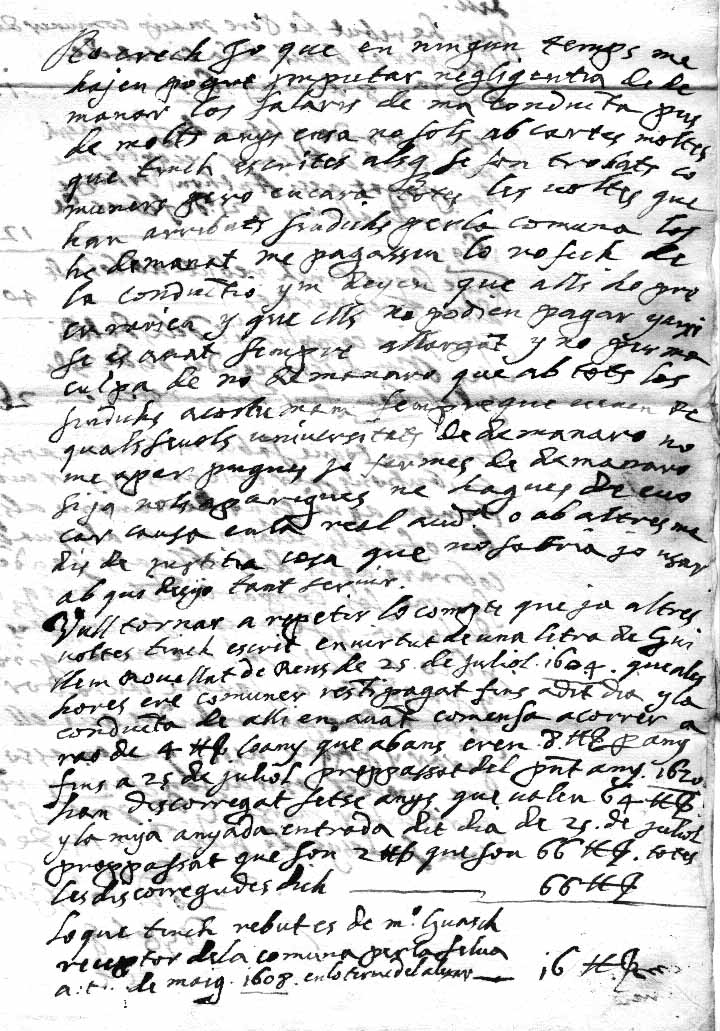 jo que en ningun temps me
hajen pogut imputar negligentia de de
manar los salaris de ma conducta pus
de molts anys ensa no sols ab cartes moltes
que tinch escrites als q se son trobats co
muners pero encara totes les voltes que
han arribats sindichs per la comuna los
he demanat me pagassen lo rosech de
la conductio y m deyen que alls do pro
curaria y que ells no podien pagar y axi
se es anat sempre allargat y no per ma
culpa de no demanaro que ab tots los
sindichs acostumam sempre que venen de
qualssevols universitats de demanaro no
me apar pugues jo fer mes de demanaro
si ja nols aparegues ne hagues de evo
car causa en la real audª o ab altres me
dis de justitia cosa que no sabria jo usar
ab qui dego tant servir.
Vull tornar a repetir lo compte que ja altres
voltes tinch escrit en virtut de una litra de Gui
llem Rovellat de Reus de 25 de juliol 1604. que ales
hores ere comuner resti pagat fins adit dia y la
conducta de alli en avant comensa a correr a
rao de 4 ℔ lo any que abans eren 8 ℔ p any
fins a 25 de juliol proppassat del pñt any 1620
han discorregut setse anys que valen 64 ℔
y la mija anyada entrada dit dia de 25 de juliol
proppassat que son 2 ℔ que son 66 ℔ totes
les discorregudes dich 66 ℔
Lo que tinch rebut es de mº Guasch
receptor de la comuna per la selva
a de maig 1608 16 ℔